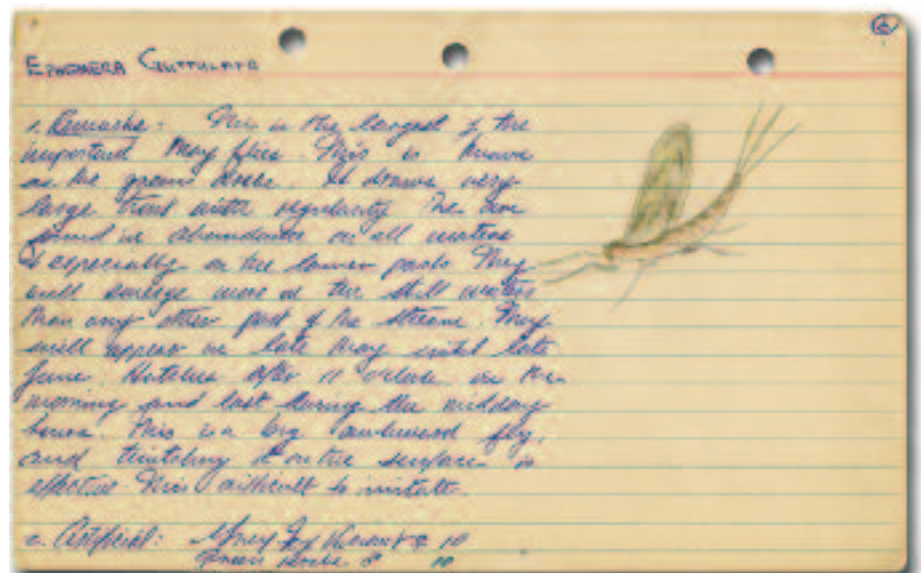 EPHEMERA GUTTULATA
1. Remarks: This is the largest of the
important May flies. This is known
as the green drake. It draws very
large trout with regularity. The are
found in abundance on all waters
& especially on the lower parts. They
will emerge more at the still waters
than any other part of the stream. They
will appear in late May until late
June. Hatches after 11 o'clock in the
morning and last during the midday
hours. This is a big awkward fly,
and twitching it on the surface is
effective. This difficult to imitate.
2. Artificial: Grey Fox 10
Green Drake 10